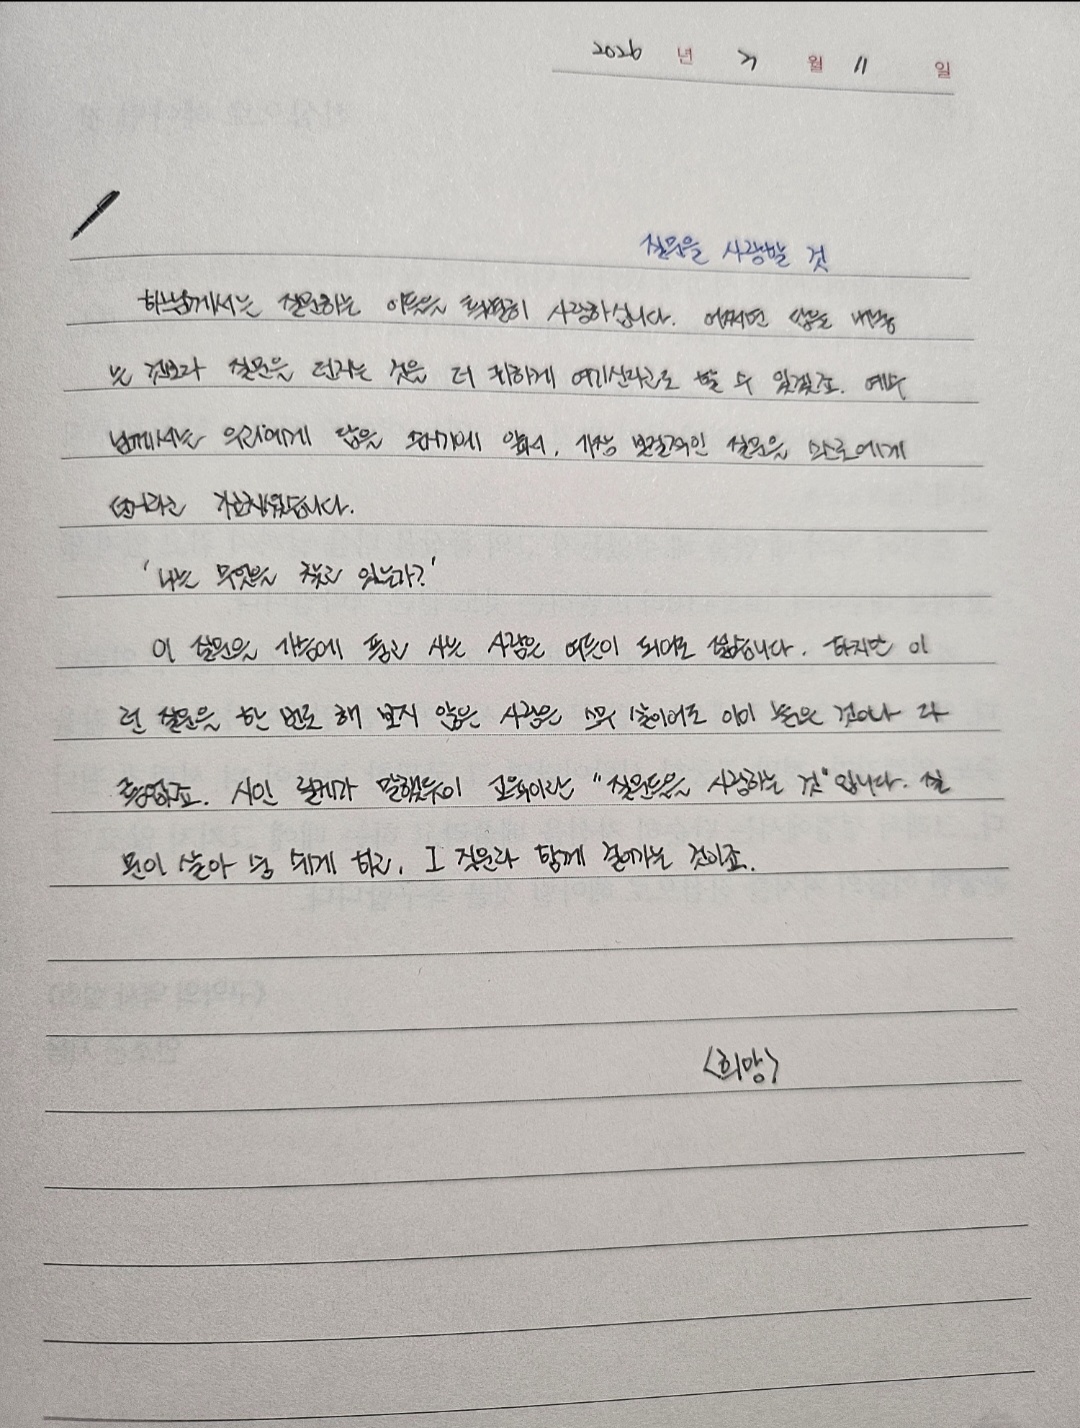 2026 년 7 월 11 일
질문을 사랑할 것
하느님께서는 질문하는 이들을 특별히 사랑하십니다. 어쩌면 답을 내놓
는 것보다 질문을 던지는 것을 더 귀하게 여기신다고도 할 수 있겠죠. 예수
님께서는 우리에게 답을 주기에 앞서, 가장 본질적인 질문을 스스로에게
던지라고 가르치셨습니다.
'나는 무엇을 찾고 있는가?'
이 질문을 가슴에 품고 사는 사람은 여든이 되어도 젊습니다. 하지만 이
런 질문을 한 번도 해 보지 않은 사람은 스무 살이어도 이미 늙은 것이나 다
름없죠. 시인 릴케가 말했듯이 교육이란 "질문들을 사랑하는 것"입니다. 질
문이 살아 숨 쉬게 하고, 그 질문과 함께 걸어가는 것이죠.
<희망>